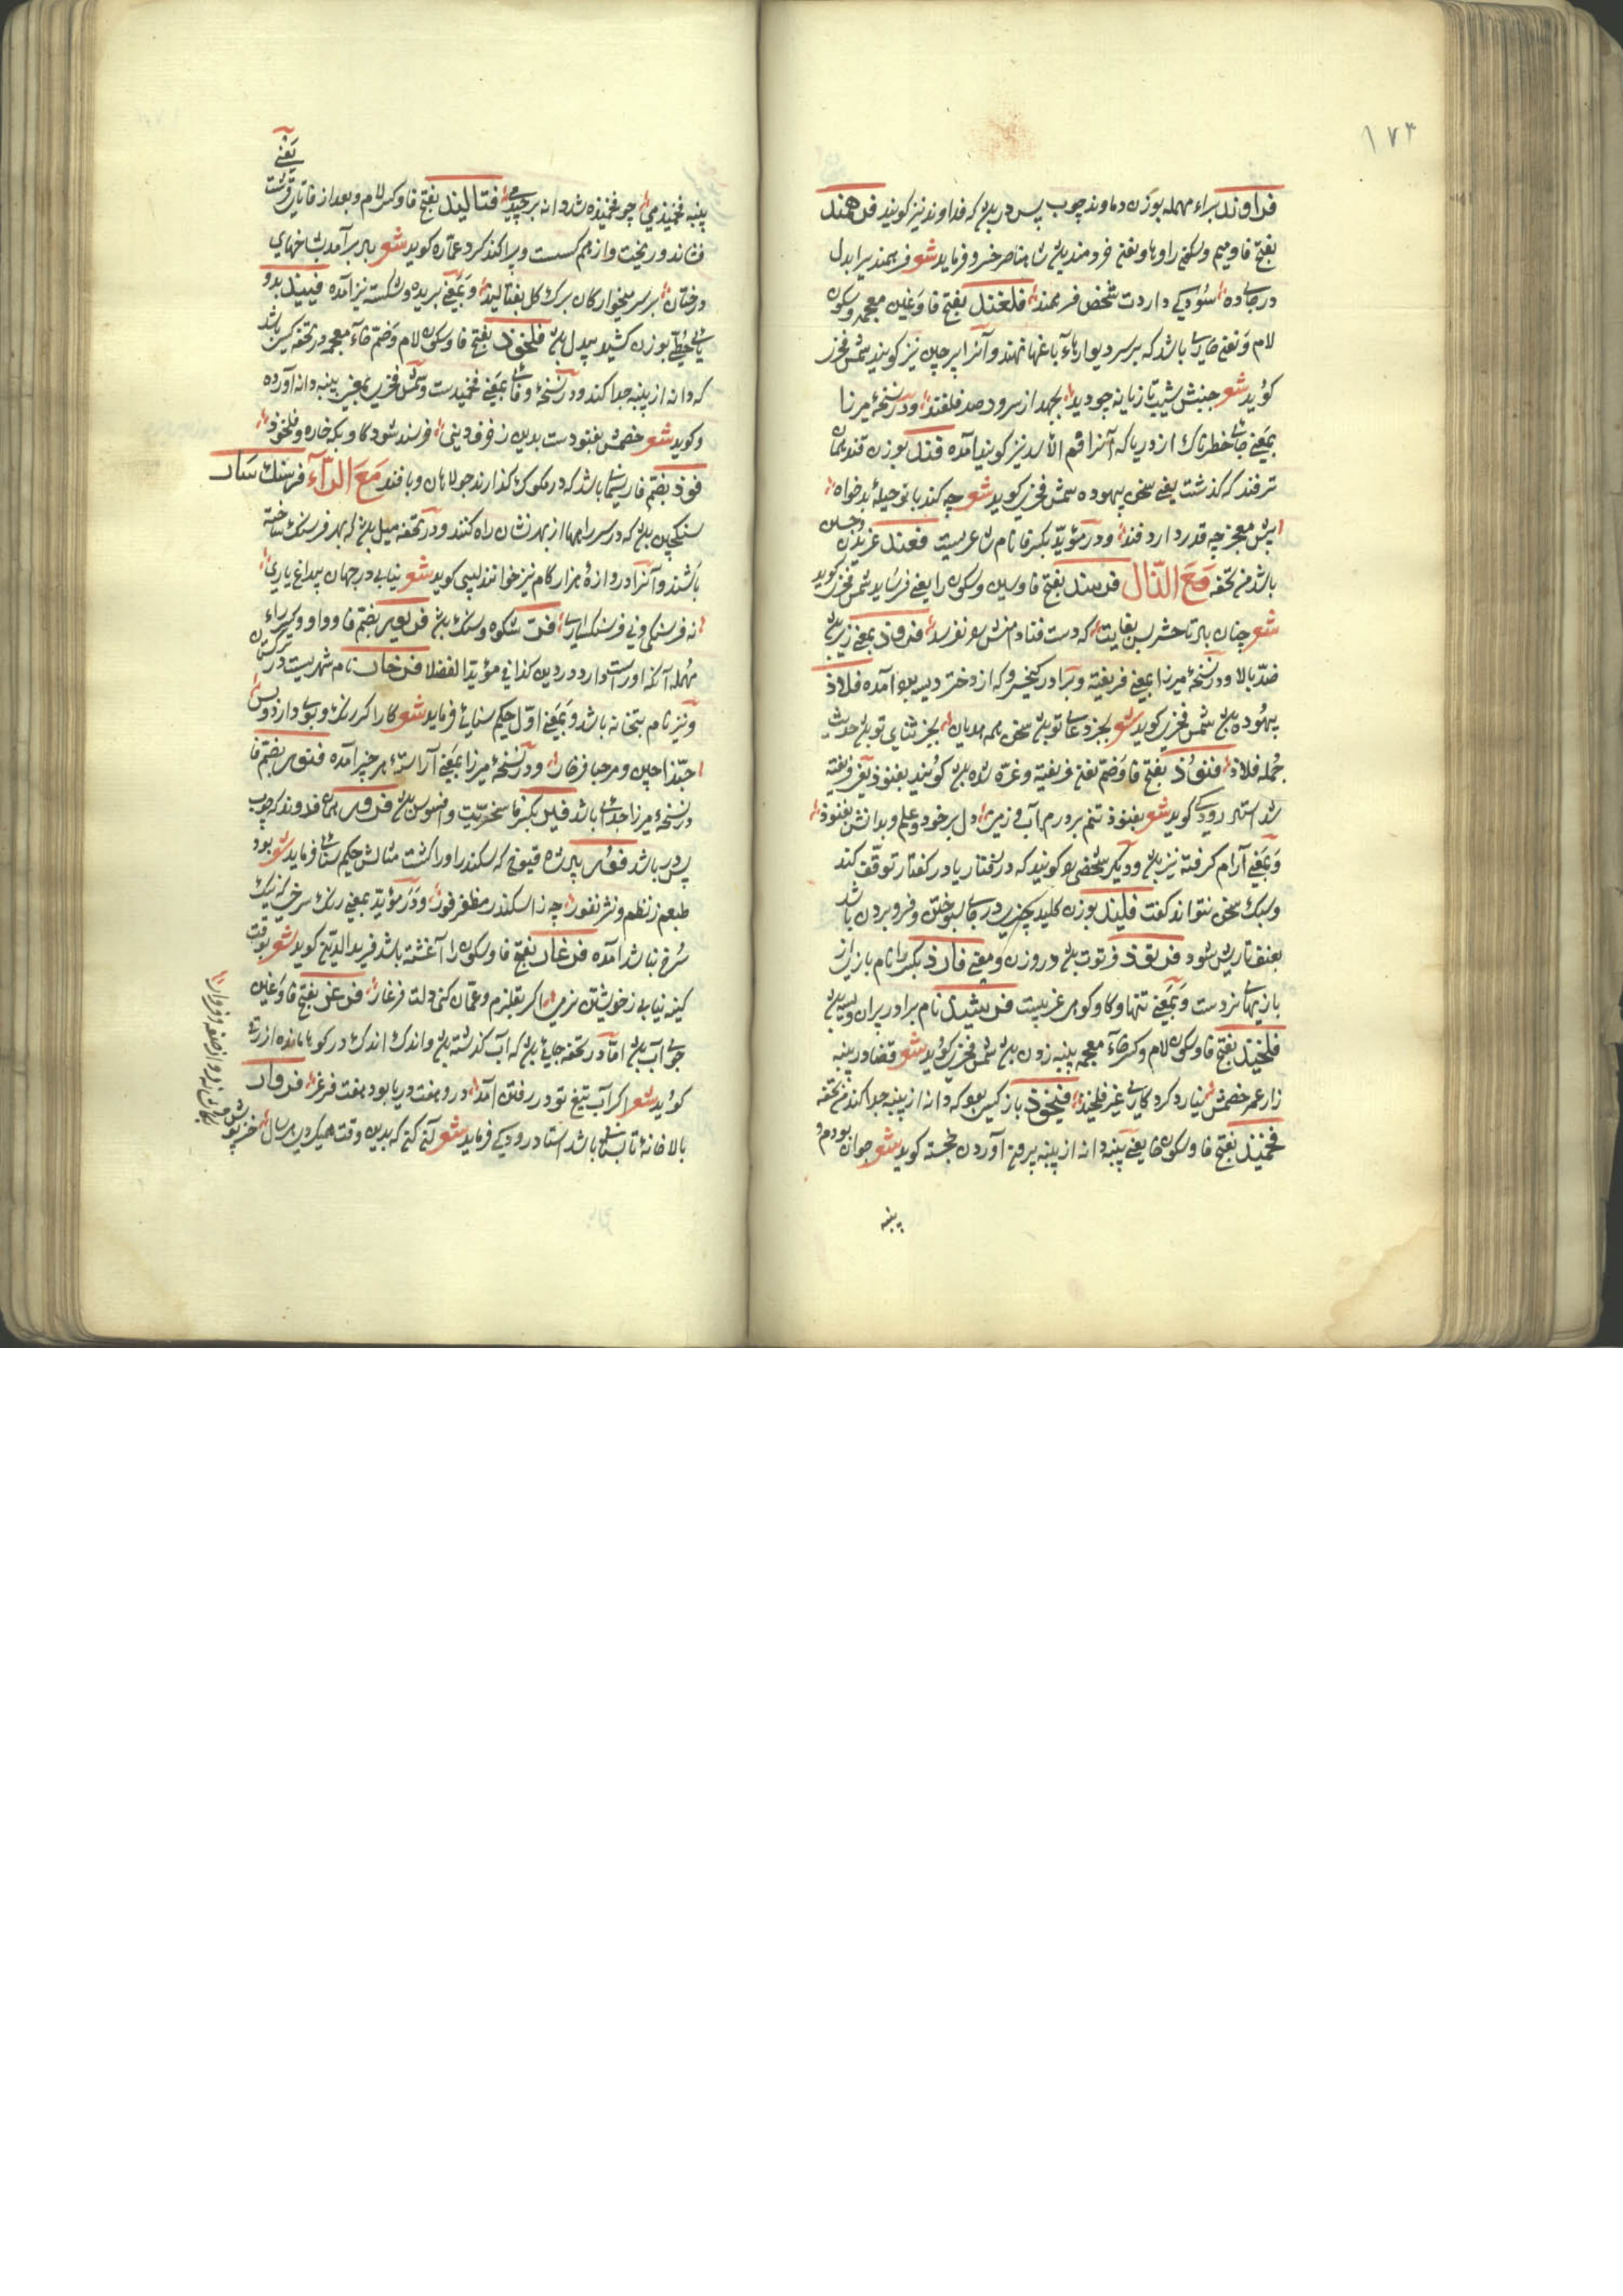 ۱۷۴
فراوند براء مهمله بوزن دماوند چوب پس در بدن که فداوند نیز کویند فرهمند
بفتح فا و میم و سکون را و ها و یعنی خردمند بدن شاه ناصر خسرو فرماید شعر فرهمند یرا بدل
در جای ده سود کی داردت شخص فربهمند فلغند بفتح فا و غین معجمه و سکون
لام و یعنی خار باشد که بر سر دیوارهاء باغها نهند و آنرا پرچین نیز کویند شمس فخر
کوید شعر جنبش شیب تازیانه چو دید بجهد از سر و دصد فلغند و در نسخهٔ میرزا
بمعنی جای خطرناک از دریا که آنرا فم الاسد نیز کویند آمده فند بوزن قند همان
ترفند که کذشت یعنی سخن بیهوده شمس فخری کوید شعر چه کند با تو حیلهٔ بدخواه
پیش معجز چه قدر دارد فند و در مؤید بکسر فا نام شاعریست فغند غریدن و جستن
باشد من تحفه مَعَ الذّال فرسند بفتح فا و سین و سکون را یعنی فرساید شمس فخری کوید
شعر چنان بالا تا حشر بس بغایت که دست فنا دامنش را نفرسد فرود بمعنی زیر بدن
ضد بالا و در نسخهٔ میرزا بمعنی فریفته و برادر کیخسرو که از دختر دیسه بود آمده فلاذ
بیهوده بدن شمس فخری کوید شعر بجز دعای تو بدن سخن همه هذیان بجز ثنای تو بدن حدیث
جمله فلاذ فنوذ بفتح فا و ضم یعنی فریفته و غره شده بدن کویند بفنوذ یعنی فریفته
شد استاد رودکی کوید شعر بفنوذ تنم بر درم آب و زمین دل بر خرد و علم و بدانش بفنوذ
و بمعنی آرام کرفته نیز بدن و دیگر شخصی را کویند که در رفتار یا در کفتار توقف کند
و سبک سخن نتواند کفت فلیند بوزن کلید چیزی در جای سپوختن و فرو بردن باشد
بعنف تا ریش شود فرتوذ فرتوت بدن در وزن و معنی فارذ بکسر را نام بازی از
بازیهای نردست و بمعنی تنها و کاو کوهی عربیست فرشید نام برادر پیران ویسه بدن
فلخید بفتح فا و سکون لام و کسر خاء معجمه پنبه زدن بدن شمس فخری کوید شعر قضا در پنبه
زار عمر خصمش نیارد کرد کاری غیر فلخید فلخوذ باز کسی بود که دانه از پنبه جدا کند من تحفه
فخمیند بفتح فا و سکون خا یعنی پنبه دانه از پنبه بیرون آوردن خجسته کوید شعر جوان بودم و
پنبه
یعنی
پنبه فخمیذمی چو فخمیذه شد دانه برچیدمی فتالیند بفتح فا و کسر لام و بعد از فا تای قرشت
فشاند و ریخت و از هم کسست و پراکند کرد عماره کوید شعر باد برآمد بشاخهای
درختان بر سر میخوار کان برک کل بفتالید و بمعنی بریده و شکسته نیز آمده فیینذ بدو
یای حطی بوزن کشید بیدل بدن فلخوذ بفتح فا و سکون لام و ضم خاء معجمه در تحفه کسی باشد
که دانه از پنبه جدا کند و در نسخهٔ وفائی بمعنی فخمیدست و شمس فخری بمعنی پنبه دانه آورده
و کوید شعر خصمش بغنودست بدین زفرفودینی خرسند شود کاو بکه خاره و فلخوذ
فوذ بضم فا ریسمانی باشد که در مکوک کذارند جولاهان و بافند مَعَ الرّآء فرسنک سار
سنکچین بدن که در سر راهها از بهر نشان راه کنند و در تحفه میل بدن که بهر فرسنک ساخته
باشند و آنرا دروازهٔ هزار کام نیز خوانند لبیبی کوید شعر نیابی در جهان بی داغ یاری
نه فرسنکی و نی فرسنکساری فر شکوه و سنک بدن فریور بضم فا و واو و کسر راء
مهمله آنکه او راست و وارد در دین کذا فی مؤید الفضلا فرخار نام شهریست در ترکستان
و نیز نام بتخانه باشد و بمعنی اول حکیم سنایی فرماید شعر کارا کر رنک و بوی دارد و بس
حبّذا چین و مرحبا فرخار و در نسخهٔ میرزا بمعنی آراسته هر چیز آمده فتور بضم فا
در نسخهٔ میرزا جدائی باشد فیر بکسر فا سخریت و افسوس بدن فرور همان فدوند که چوب
پس در باشد فور پادشاه قنوج که سکندر او را کشت مثالش حکیم سنائی فرماید شعر بود
طبعم ز نظم و نثر نفور چه ز اسکندر مظفر فور و در مؤید بمعنی رنک سرخ که نیک
سرخ نباشد آمده فرغار بفتح فا و سکون را آغشته باشد فرید الدین کوید شعر بوقت
کینه نیابی ز خویشتن نرمی اکر بقلزم و عمان کنی دلت فرغار فرغر بفتح فا و غین
جوی آب بدن اما در تحفه جائی بدن که آب کذشته بدن و اندک اندک در کوها مانده ازرقی
کوید شعر اکر آب تیغ تو در رفتن آمد درو هفت دریا بود هفت فرغر فروار
بالا خانهٔ تابستانی باشد استاد رودکی فرماید شعر آن کن که بدین وقت همیکردی هر سال خز پوش
بکاشانه رو از صفه و فروار